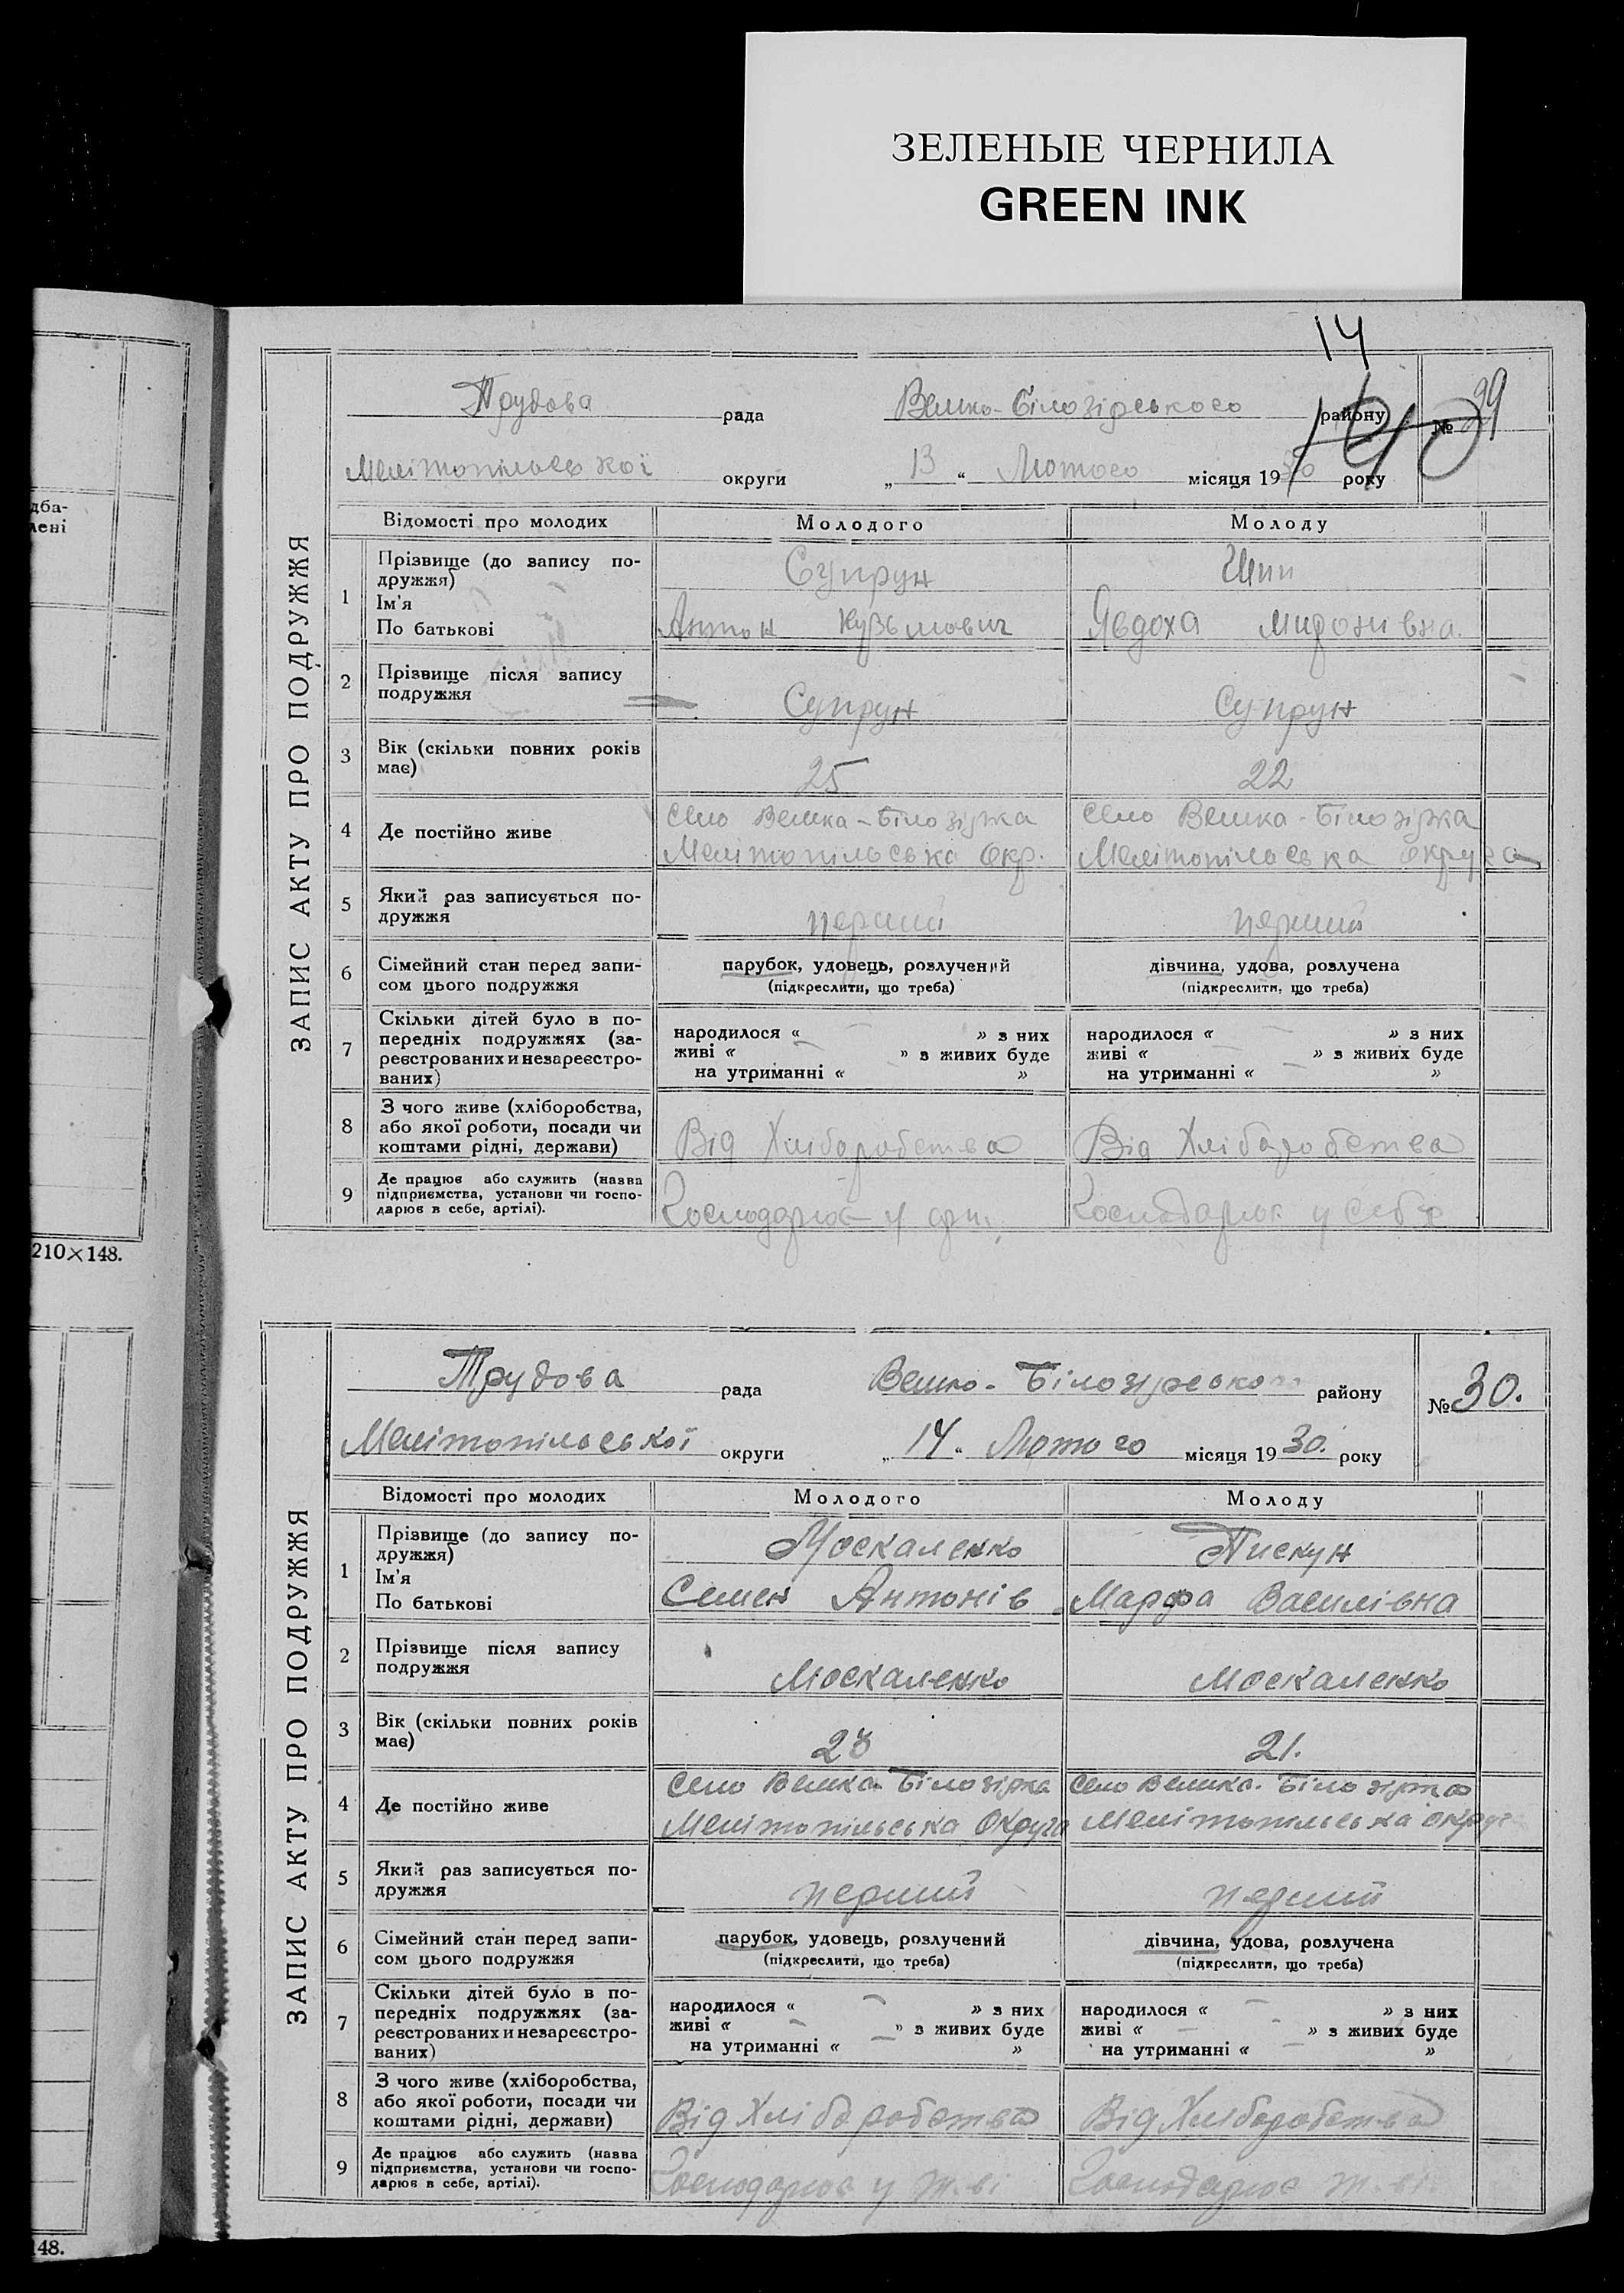 ЗЕЛЕНЫЕ ЧЕРНИЛА
GREEN INK
14
Трудова рада Велико-Білозірського району № 29
Мелітопільської округи „13“ Лютого місяця 1930 року
дба-
лені
210×148.
48.
ЗАПИС АКТУ ПРО ПОДРУЖЖЯ
Відомості про молодих Молодого Молоду
1 Прізвище (до запису по-
дружжя) Супрун
Ім'я
По батькові Антон Кузьмович Явдоха Миронивна.
2 Прізвище після запису
подружжя Супрун Супрун
3 Вік (скільки повних років
має) 25 22
4 Де постійно живе Село Велика-Білозірка Село Велика-Білозірка
Мелітопільська Окр. Мелітопільська округа
5 Який раз записується по-
дружжя перший перший
6 Сімейний стан перед запи-
сом цього подружжя
парубок, удовець, розлучений дівчина, удова, розлучена
(підкреслити, що треба) (підкреслити, що треба)
7 Скільки дітей було в по-
передніх подружжях (за-
реєстрованих и незареєстро-
ваних)
народилося « — » з них народилося « — » з них
живі « — » з живих буде живі « — » з живих буде
на утриманні « » на утриманні « — »
8 З чого живе (хліборобства,
або якої роботи, посади чи
коштами рідні, держави) Від Хліборобства Від Хліборобства
9 Де працює або служить (назва
підприємства, установи чи госпо-
дарює в себе, артілі). Господарює у Господарює у себе
Трудова рада Велико-Білозірського району № 30.
Мелітопільської округи „14“ Лютого місяця 1930. року
ЗАПИС АКТУ ПРО ПОДРУЖЖЯ
Відомості про молодих Молодого Молоду
1 Прізвище (до запису по-
дружжя) Москаленко Пискун
Ім'я
По батькові Семен Антонів Марфа Василівна
2 Прізвище після запису
подружжя Москаленко Москаленко
3 Вік (скільки повних років
має) 21.
4 Де постійно живе Село Велика-Білозірка Село Велика-Білозірка
Мелітопільська Округа Мелітопільська округ
5 Який раз записується по-
дружжя перший перший
6 Сімейний стан перед запи-
сом цього подружжя
парубок, удовець, розлучений дівчина, удова, розлучена
(підкреслити, що треба) (підкреслити, що треба)
7 Скільки дітей було в по-
передніх подружжях (за-
реєстрованих и незареєстро-
ваних)
народилося « — » з них народилося « — » з них
живі « — » з живих буде живі « — » з живих буде
на утриманні « — » на утриманні « — »
8 З чого живе (хліборобства,
або якої роботи, посади чи
коштами рідні, держави) Від Хліборобства Від Хліборобства
9 Де працює або служить (назва
підприємства, установи чи госпо-
дарює в себе, артілі). Господарює у Господарює